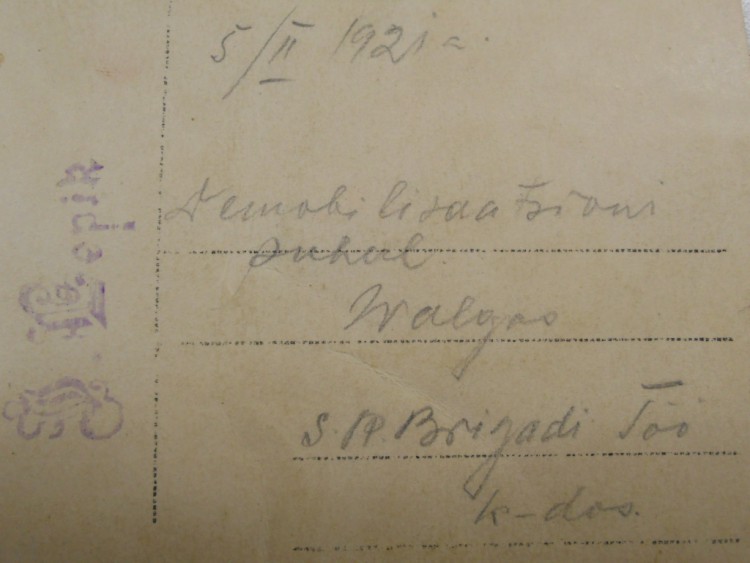 5/II 1921 a.
Demobilisaatsioni
puhul
Walgas
S. R. Brigadi Töö
k-dos.
Lepik